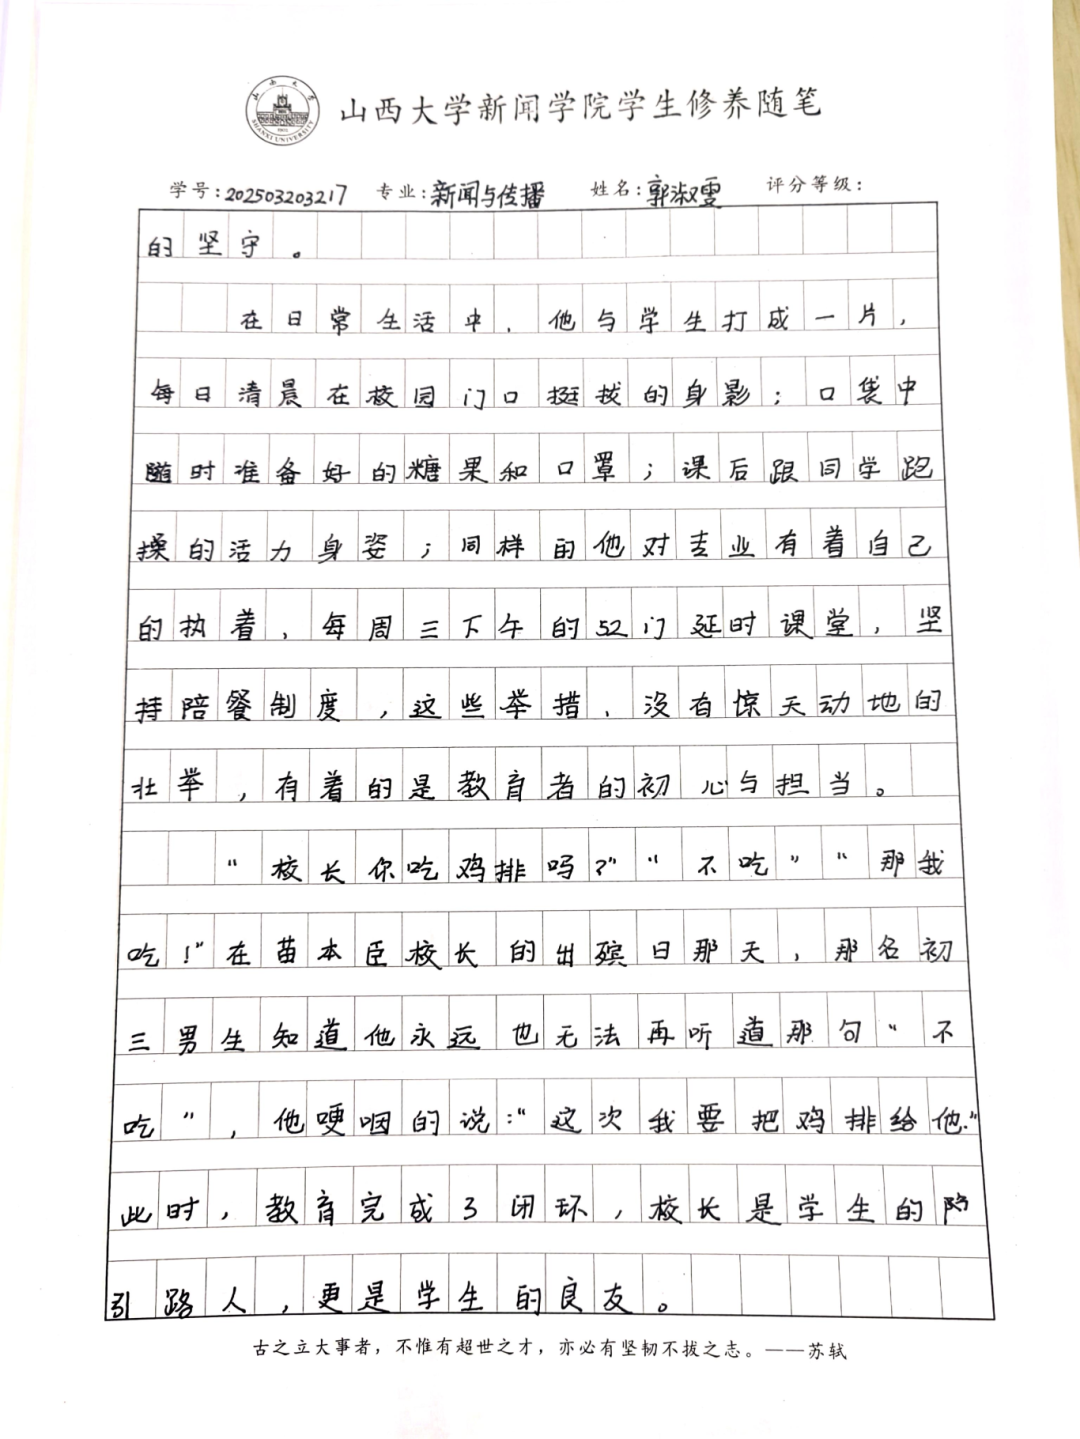 山西大学新闻学院学生修养随笔
山西大学
SHANXI UNIVERSITY
学号:202503203217 专业:新闻与传播 姓名:郭淑雯 评分等级:
的坚守。
在日常生活中，他与学生打成一片，
每日清晨在校园门口挺拔的身影；口袋中
随时准备好的糖果和口罩；课后跟同学跑
操的活力身姿；同样的他对专业有着自己
的执着，每周三下午的52门延时课堂，坚
持陪餐制度，这些举措、没有惊天动地的
壮举，有着的是教育者的初心与担当。
“校长你吃鸡排吗？”“不吃”“那我
吃！”在苗本臣校长的出殡日那天，那名初
三男生知道他永远也无法再听道那句“不
吃”，他哽咽的说：“这次我要把鸡排给他.”
此时，教育完成了闭环，校长是学生的
引路人，更是学生的良友。
古之立大事者，不惟有超世之才，亦必有坚韧不拔之志。——苏轼